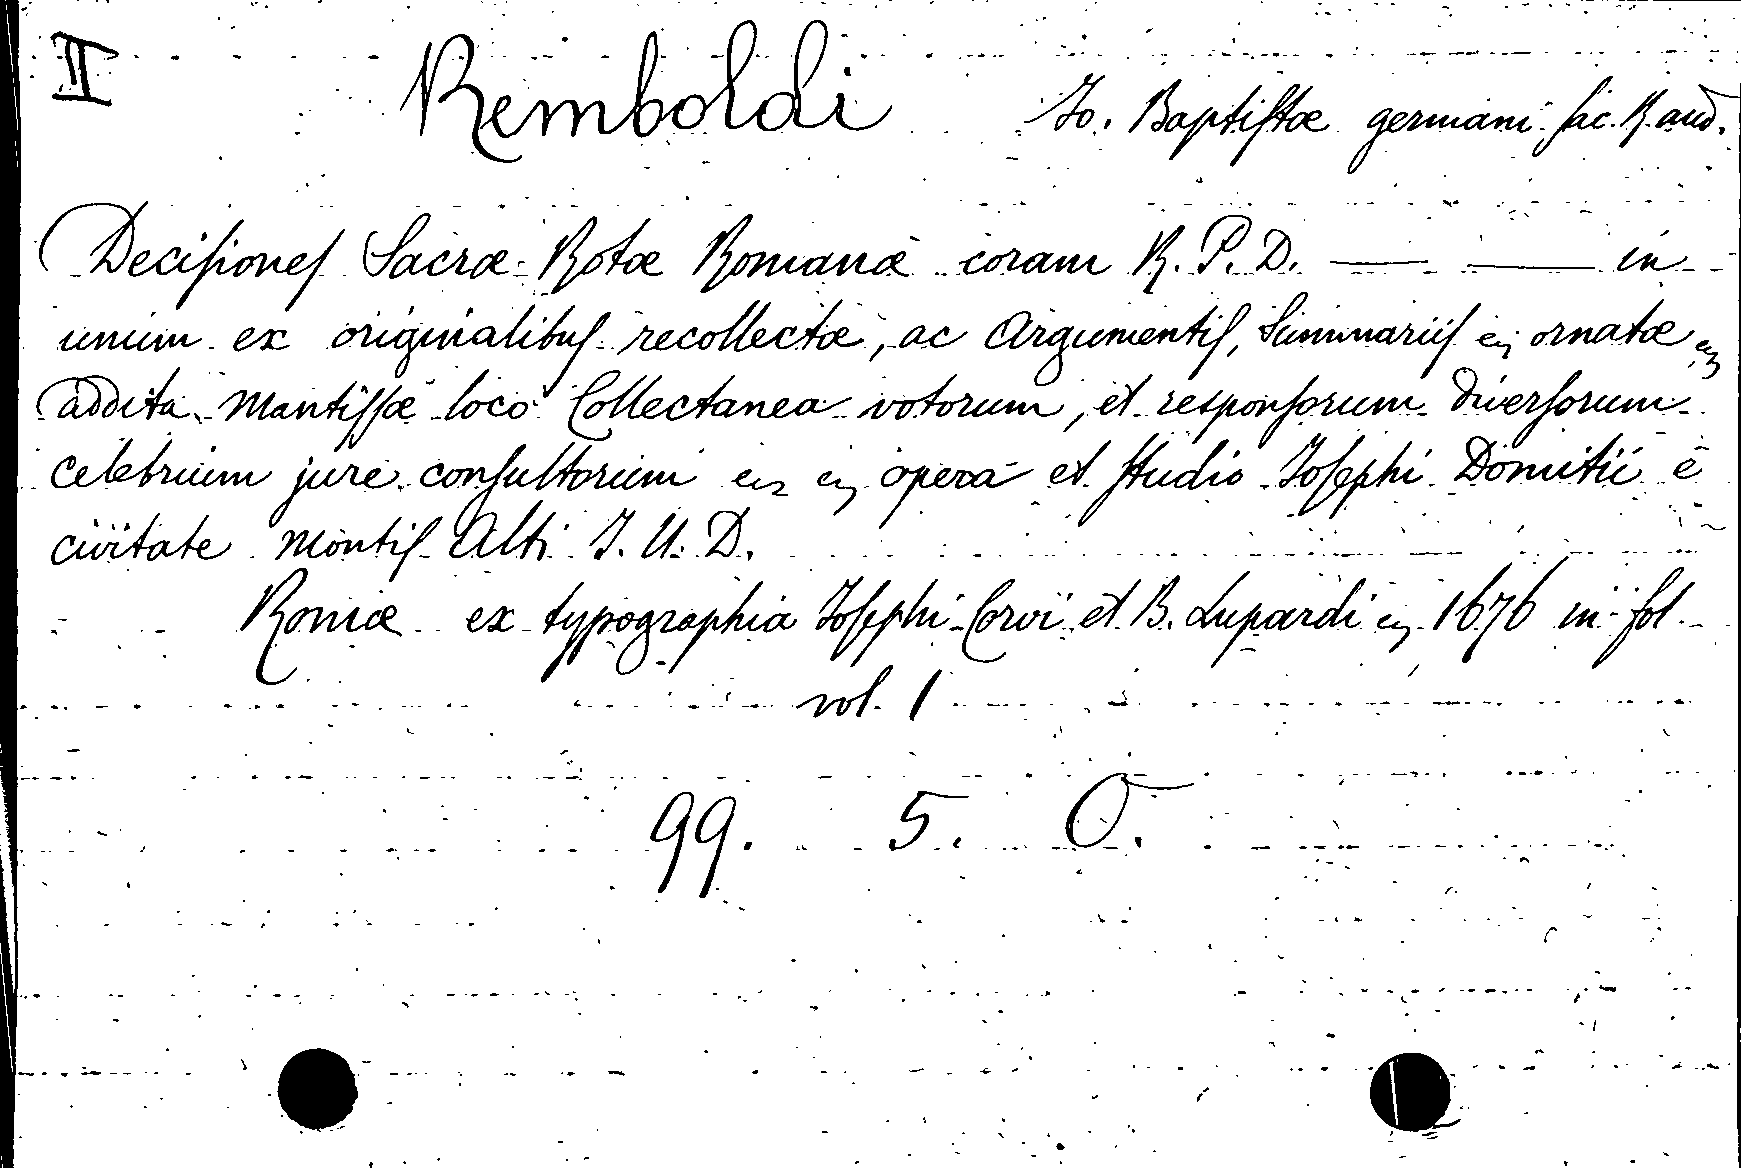 II Remboldi Jo. Baptiſtæ germani ſac. R. aud.
Deciſioneſ Sacræ Rotæ Romanæ coram R. P. D. —— —— in
unum ex originalibuſ recollectæ, ac Argumentiſ, Summariiſ ornatæ
addita Mantiſſæ loco Collectanea votorum, et reſponſorum diverſorum
celebrium jure conſultorum opera et ſtudio Joſephi Domitii e
civitate Montiſ Alti J. U. D.
Romæ ex typographia Joſephi Corvi et B. Lupardi 1676 in fol
vol. 1
99. 5. O.